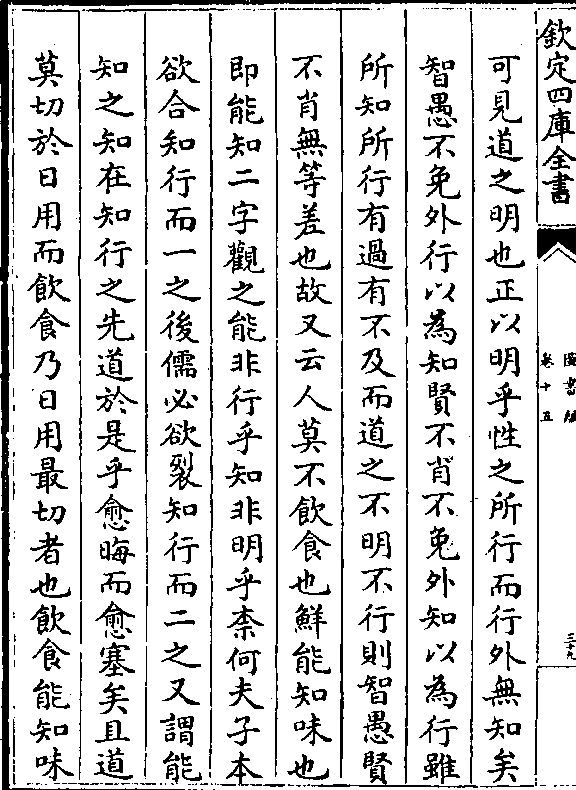 欽定四庫全書
圖書編
卷十五
三十九
可見道之明也正以明乎性之所行而行外無知矣
智愚不免外行以為知賢不肖不免外知以為行雖
所知所行有過有不及而道之不明不行則智愚賢
不肖無等差也故又云人莫不飲食也鮮能知味也
即能知二字觀之能非行乎知非明乎柰何夫子本
欲合知行而一之後儒必欲裂知行而二之又謂能
知之知在知行之先道於是乎愈晦而愈塞矣且道
莫切於日用而飲食乃日用最切者也飲食能知味